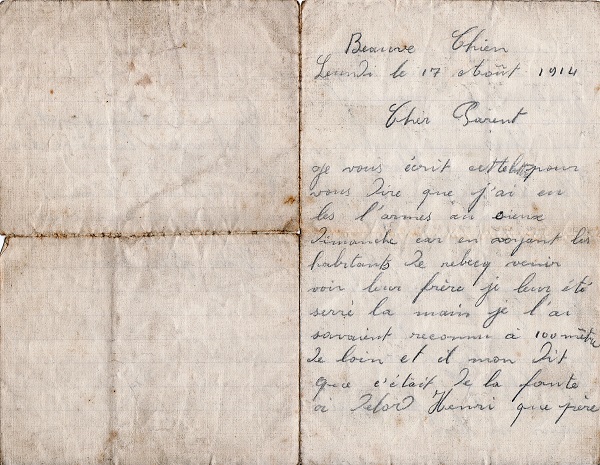 Beauve Chien
Lundi le 17 Août 1914
Cher Parent
Je vous écrit cette pour
vous dire que j'ai eu
les l'armes au
dimanche car en voyant les
habitants de rebecq venir
voir leur frère je leur été
serré la main je l'ai
savaient reconnu à 100 mètre
de loin et il mon dit
que c'était de la faute
a Henri que père